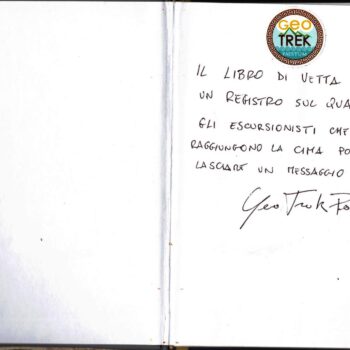 GEO
TREK
PAESTUM
IL LIBRO DI VETTA
UN REGISTRO SUL QUA
GLI ESCURSIONISTI CHE
RAGGIUNGONO LA CIMA PO
LASCIARE UN MESSAGGIO
Geo Trek